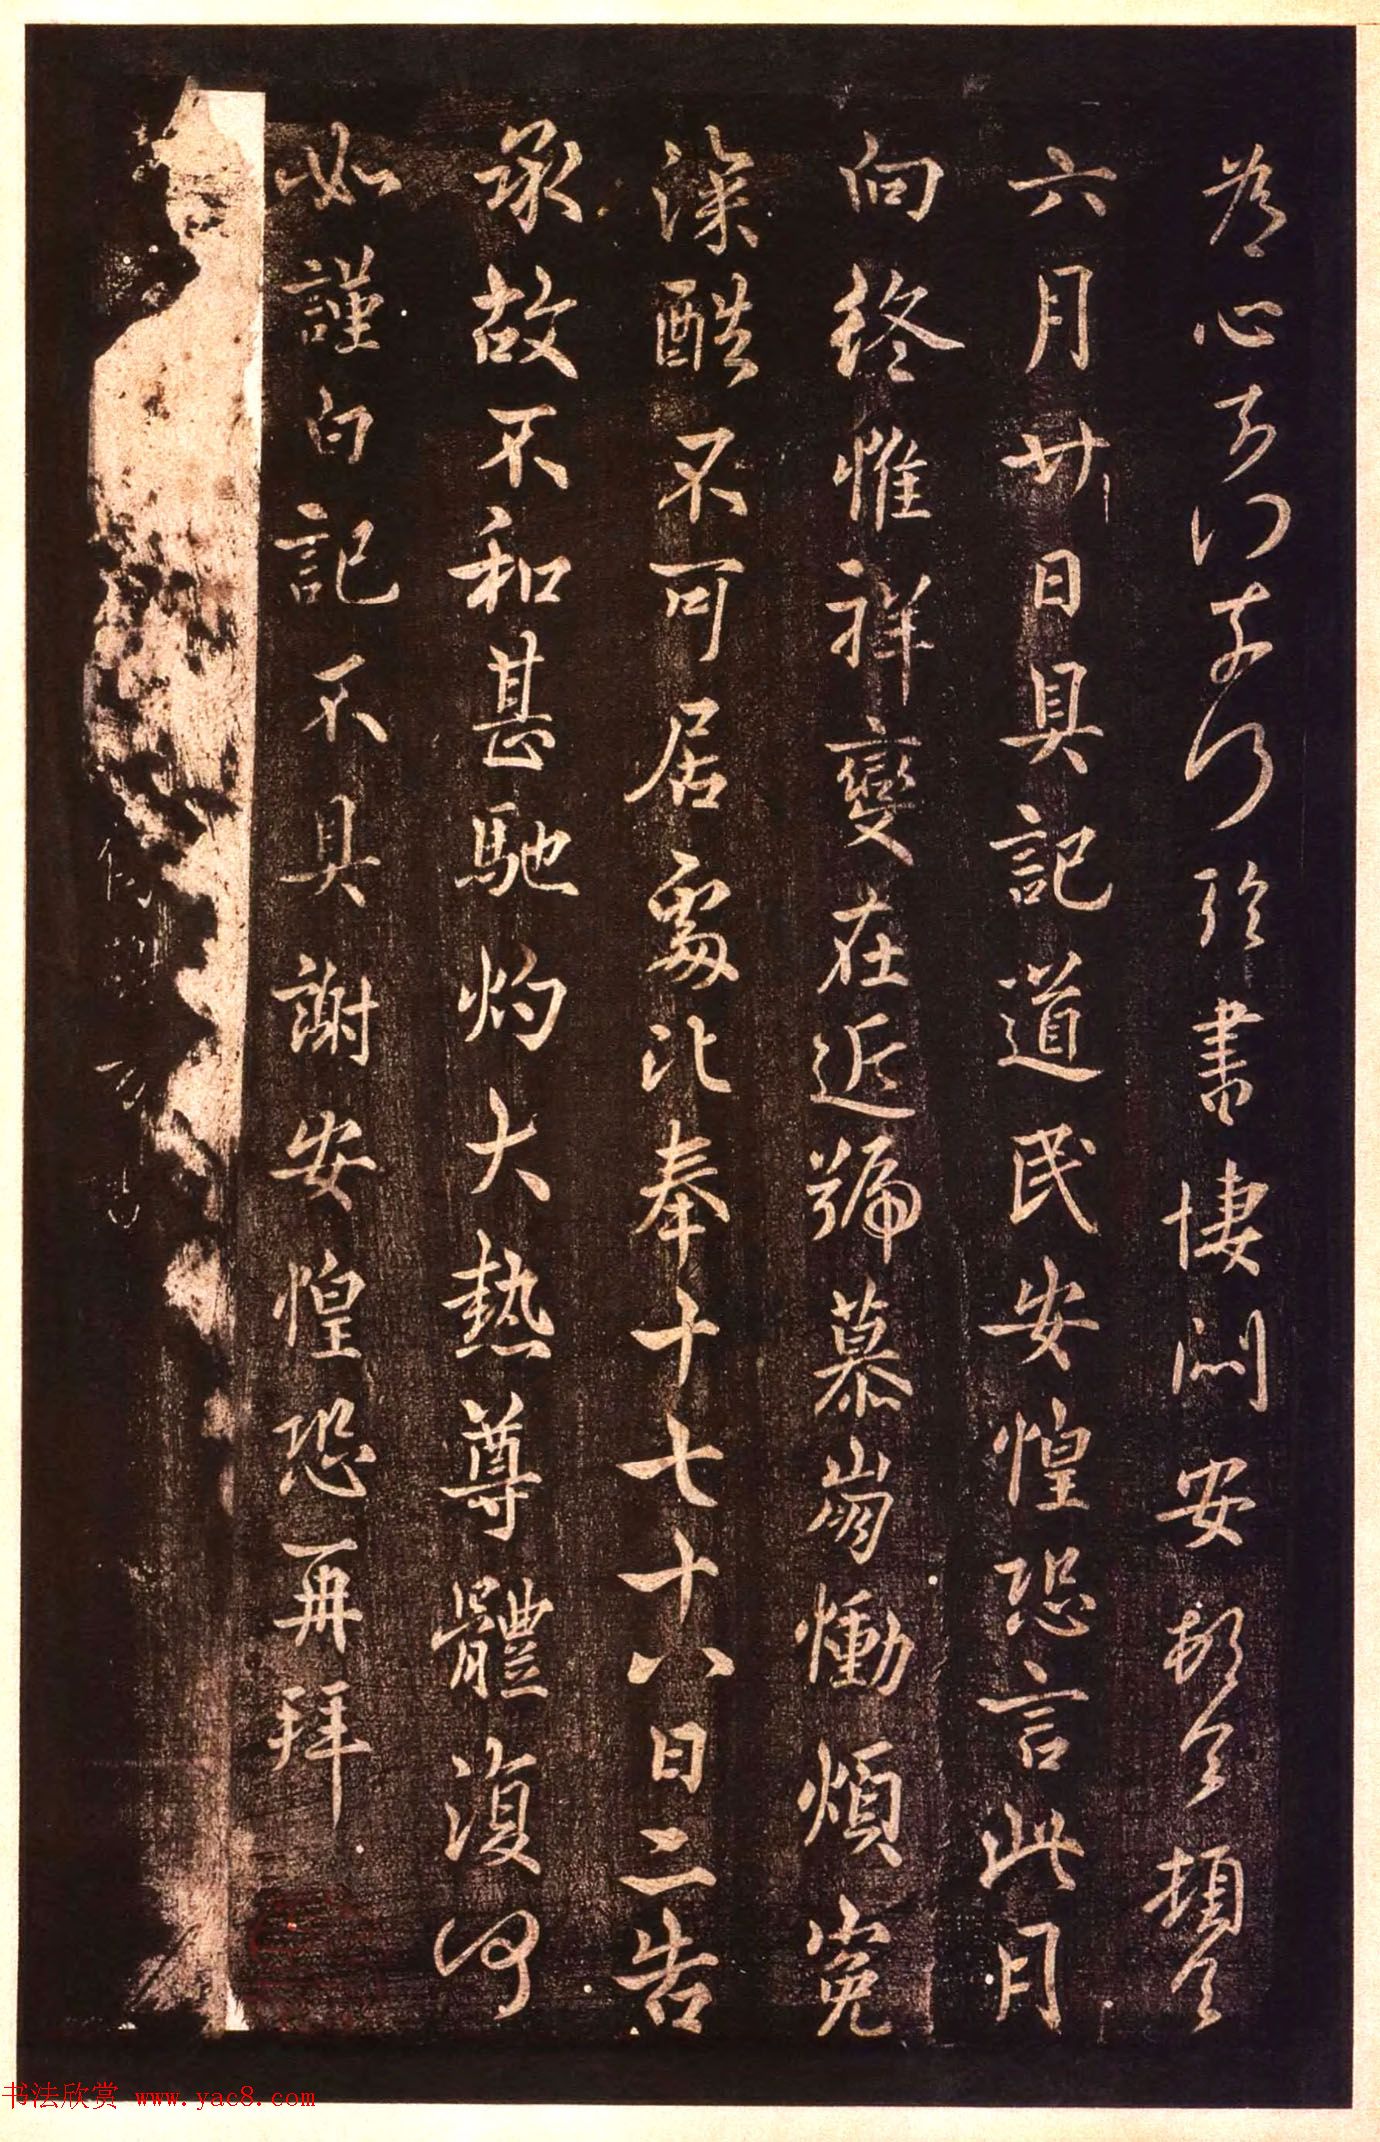 為心書悽悶安頓首頓首
六月廿日具記道民安惶恐言此月
向終惟祥變在近號慕崩慟煩冤
深酷不可居處比奉十七十八日二告
承故不和甚馳灼大熱尊體復何
如謹白記不具謝安惶恐再拜
书法欣赏 www.yac8.com